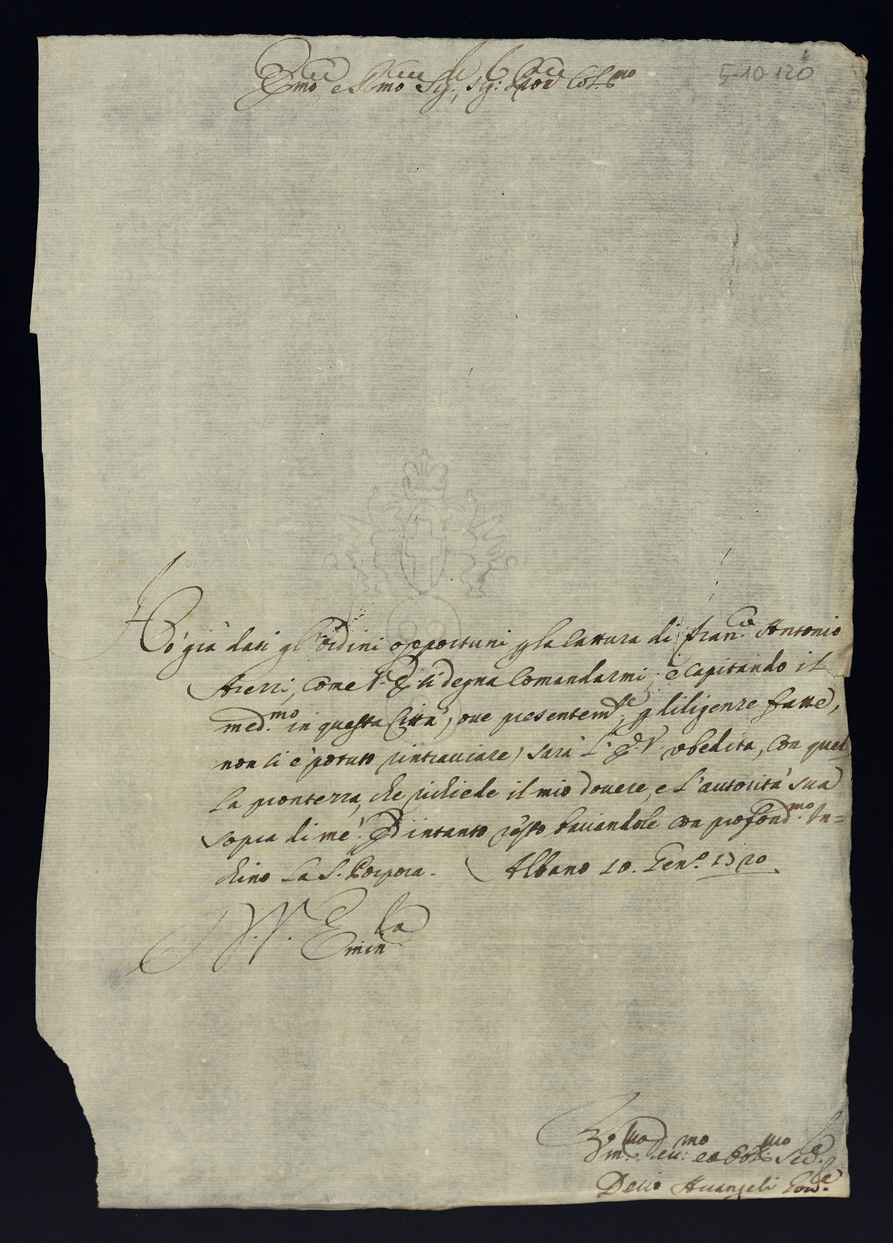 5-10-120
Em̃o e Rmo Sig.r Sig.r Pron Col.mo
Hò già dati gl'ordini opportuni p la cattura di Fran.co Antonio
come V. E. si degna comandarmi; e capitando il
med.mo in questa Città, ove presentem.te p diligenze fatte,
non si è potuto rintracciare, sarà l'E. V. obedita, con quel
la prontezza, che richiede il mio dovere, e l'autorità sua
sopra di mè. Ed intanto resto baciandole con profond.mo In=
chino la S. Porpora. Albano 10. Gen.o 1720.
D. V. Emin.za
Um.o Dev.mo ed Obl.mo Ser.e
Decio Avangeli Gov.re